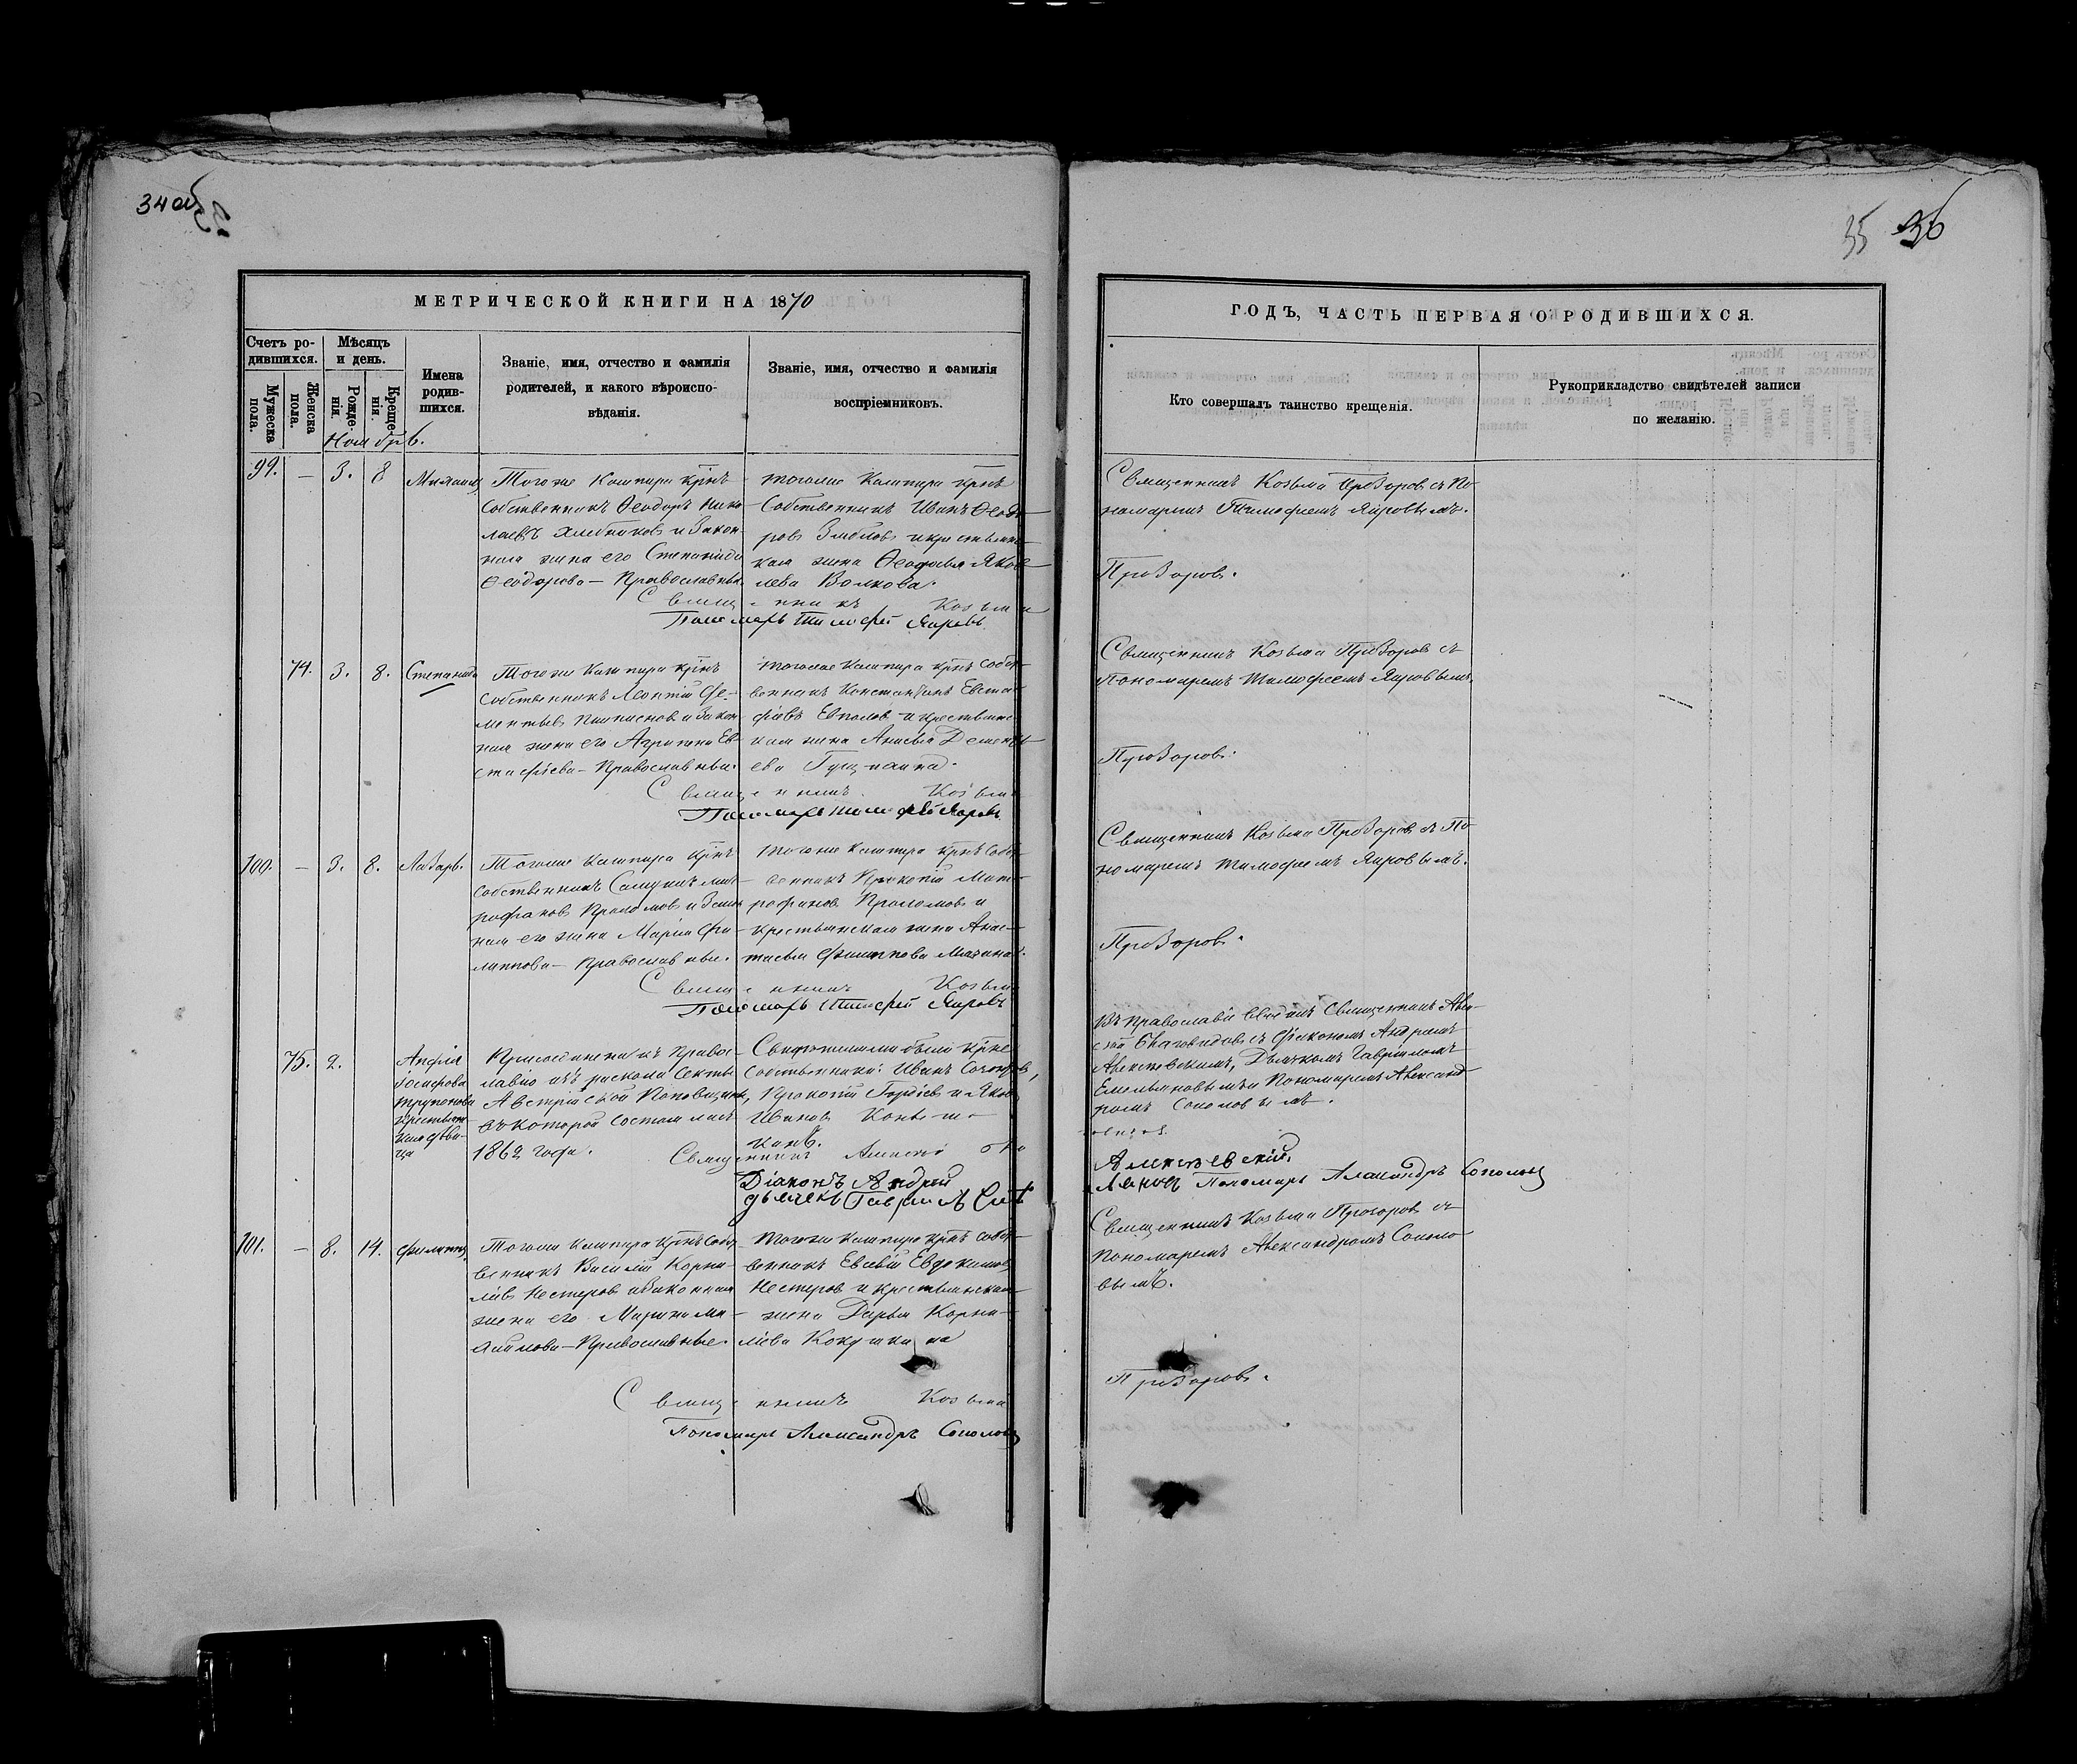 34 об
35 36
МЕТРИЧЕСКОЙ КНИГИ НА 1870
ГОДЪ, ЧАСТЬ ПЕРВАЯ О РОДИВШИХСЯ.
Счетъ ро-
дившихся.
Мужеска
пола.
Женска
пола.
Мѣсяцъ
и день.
Рожде-
нія.
Креще-
нія.
Имена
родив-
шихся.
Званіе, имя, отчество и фамилія
родителей, и какого вѣроиспо-
вѣданія.
Званіе, имя, отчество и фамилія
воспріемниковъ.
Кто совершалъ таинство крещенія.
Рукоприкладство свидѣтелей записи
по желанію.
Ноябрь.
99. — 3. 8 Михаилъ
Тогоже Кашпира крнъ
Собственникъ Ѳеодоръ Нико-
лаевъ Хлебниковъ и Закон-
ная жена его Степанида
Ѳеодорова — Православные.
Тогоже Кашпира крнъ
Собственникъ Иванъ Ѳеодо-
ровъ Зябловъ и крестьянс-
кая жена Ѳеофосья Яков-
лева Волкова.
Священникъ Козьма Прозоровъ съ По-
номаремъ Тимофеемъ Яировымъ.
Священникъ Козьма
Прозоровъ.
Пономарь Тимофей Яировъ
74. 3. 8. Степанида
Тогоже Кашпира крнъ
Собственникъ Леонтій Фе-
ментьевъ и Закон-
ная жена его Агрипена Ев-
стафіева — Православные.
Тогоже Кашпира крнъ Собст-
венникъ Константинъ Евста-
фіевъ и крестьянс-
кая жена Анисья Демен-
ева Гущиана.
Священникъ Козьма Прозоровъ съ
Пономаремъ Тимофеемъ Яировымъ.
Священникъ Козьма
Прозоровъ.
Пономарь Тимофей Яировъ
100. — 3. 8. Лазарь.
Тогоже Кашпира крнъ
Собственникъ Самуилъ Мит-
рофановъ Проломовъ и Закон-
ная его жена Марія Фи-
липпова — Православные.
Тогоже Кашпира крнъ Собст-
венникъ Прокопій Мит-
рофановъ Проломовъ и
крестьянская жена Анас-
тасья Филиппова Мячина.
Священникъ Козьма Прозоровъ съ По-
номаремъ Тимофеемъ Яировымъ.
Священникъ Козьма
Прозоровъ.
Пономарь Тимофей Яировъ
75. 2.
Анфія
Іосифова
Трупонова
крестьян-
ская дѣви-
ца
Присоединена къ Право-
славію изъ раскола Секты
Австрійской Поповщины,
въ которой состояла съ
1862 года.
Свидѣтелями были крне
Собственники: Иванъ
Прокопій Гордѣевъ и Яковъ
Ивановъ
Въ Православіе ввелъ Священникъ Алек-
сѣй Благовидовъ съ Діакономъ Андреемъ
Алексѣевскимъ, Дьячкомъ Гавріиломъ
Емельяновымъ и Пономаремъ Александ-
ромъ Соколовымъ.
Священникъ Алексѣй
Діаконъ Андрей Алексѣевскій
Дьячекъ Гавріилъ
Пономарь Александръ Соколовъ
101. — 8. 14. Филиппъ
Тогоже Кашпира крнъ Собст-
венникъ Василій Корни-
ліевъ Нестеровъ и Законная
жена его Марина Ма-
ксимова — Православные.
Тогоже Кашпира крнъ Собст-
венникъ Евсевій Евдокимовъ
Нестеровъ и крестьянская
жена Дарья Корни-
ліева Кокушкина
Священникъ Козьма Прозоровъ съ
Пономаремъ Александромъ Соколо-
вымъ.
Священникъ Козьма
Прозоровъ.
Пономарь Александръ Соколовъ